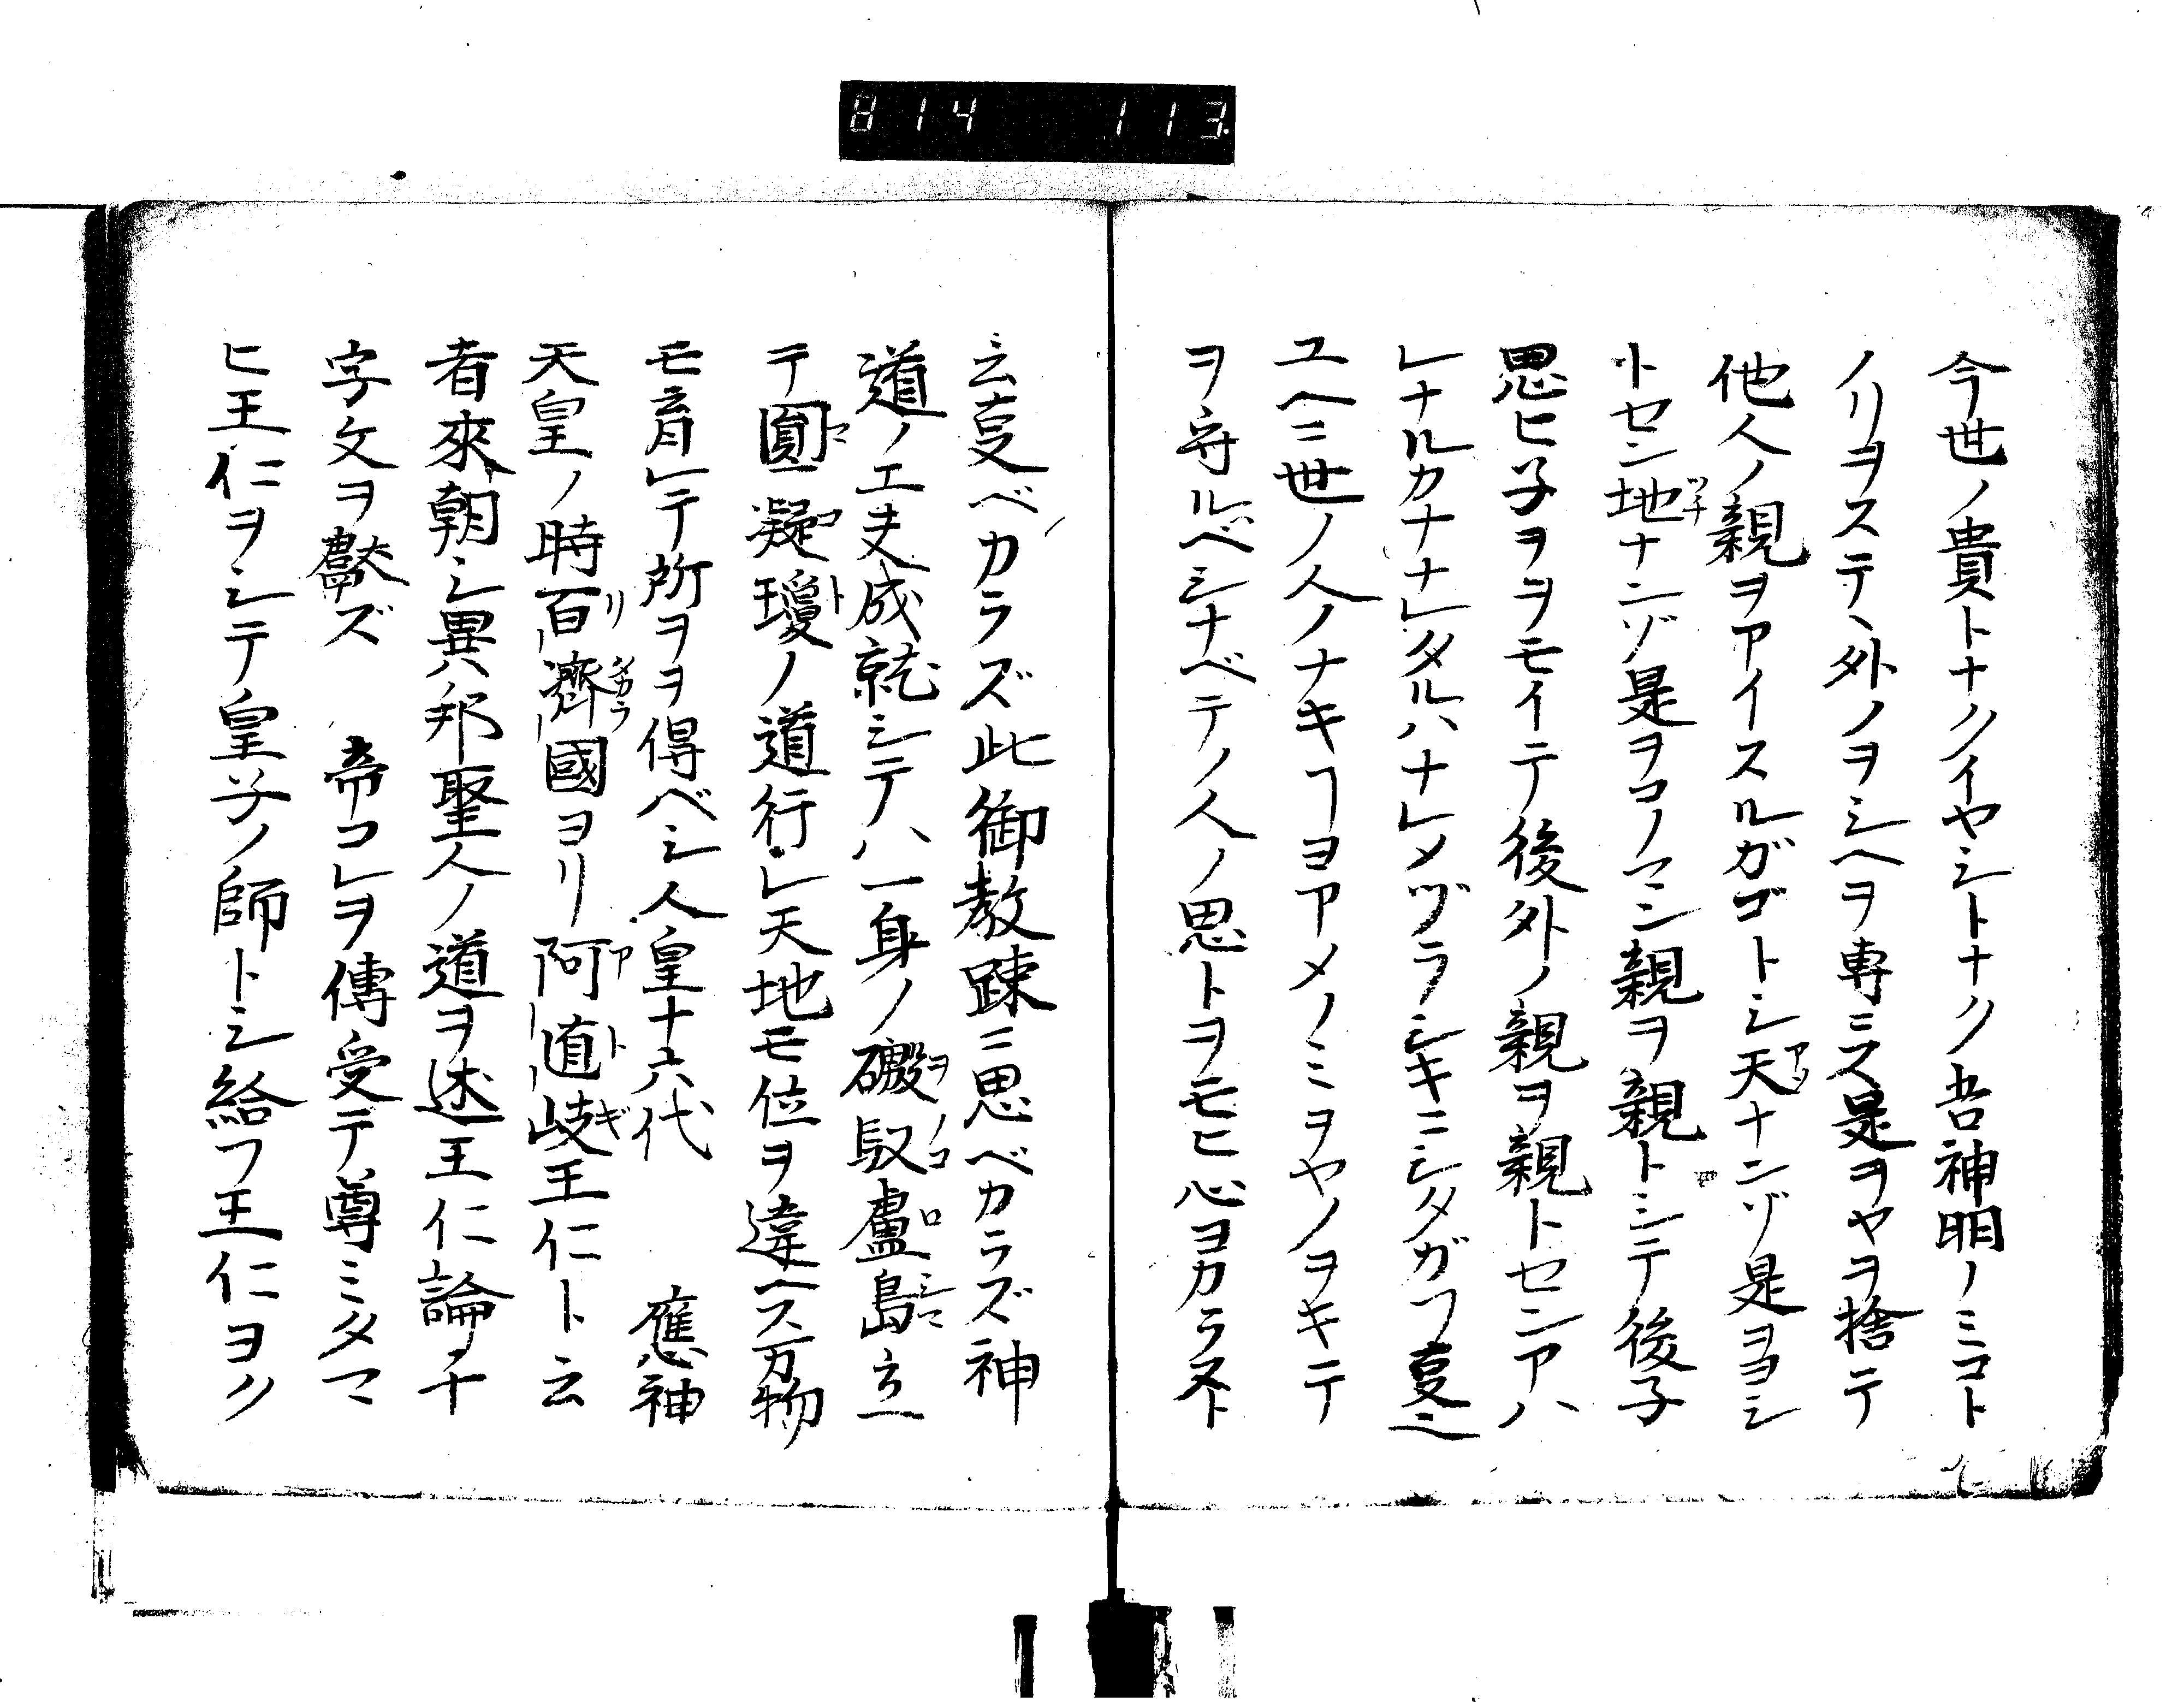 814 113
今世ノ貴トナクイヤシトナク吾神明ノミコト
ノリヲステヽ外ノヲシヘヲ専ニス是ヲヤヲ捨テ
他人ノ親ヲアイスルガゴトシ天ナンゾ是ヲヨシ
トセン地ナンゾ是ヲコノマン親ヲ親トシテ後子
思ヒ子ヲヲモイテ後外ノ親ヲ親トセンアハ
レナルカナナレタルハナレメヅラシキニシタガフ𫝑ニ
ユヘニ世ノ人ノナキヿヨアメノミヲヤノヲキテ
ヲ守ルベシナベテノ人ノ思トヲモヒ心ヨカラスト
云𫝑ベカラズ此御教踈ニ思ベカラズ神
道ノ工夫成就シテハ一身ノ磤馭盧島立
テ圓凝瓊ノ道行レ天地モ位ヲ違ヘス万物
モ育レテ所ヲヲ得ベシ人皇十六代 應神
天皇ノ時百濟國ヨリ阿直岐王仁ト云
者來朝シ異邦聖人ノ道ヲ述王仁論千
字文ヲ獻ズ 帝コレヲ傳受テ尊ミタマ
ヒ王仁ヲシテ皇子ノ師トシ給フ王仁ヲク